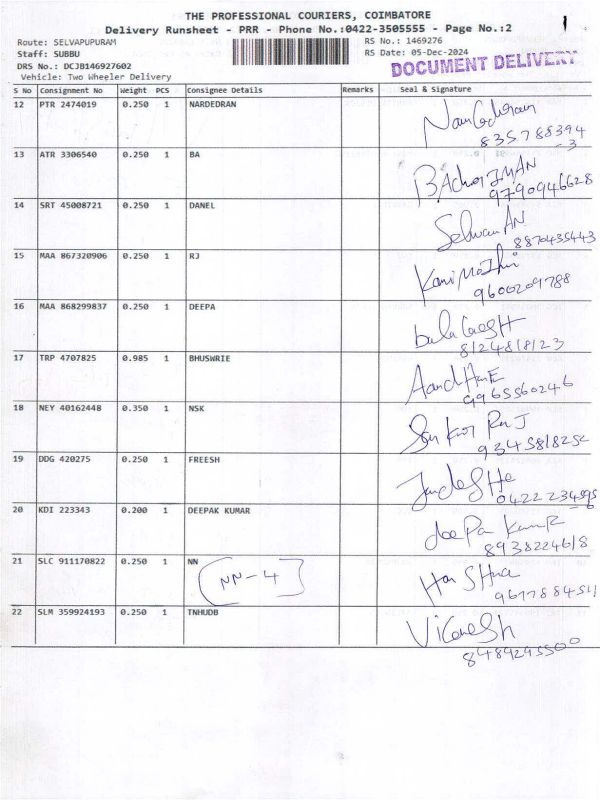 THE PROFESSIONAL COURIERS, COIMBATORE
Delivery Runsheet - PRR - Phone No.:0422-3505555 - Page No.:2
Route: SELVAPUPURAM RS No.: 1469276
Staff: SUBBU RS Date: 05-Dec-2024
DRS No.: DCJB146927602 DOCUMENT DELIVERY
Vehicle: Two Wheeler Delivery
S No Consignment No Weight PCS Consignee Details Remarks Seal & Signature
12 PTR 2474019 0.250 1 NARDEDRAN
835788394
-3
13 ATR 3306540 0.250 1 BA
9790946628
14 SRT 45008721 0.250 1 DANEL
Selwan AN
8870435443
15 MAA 867320906 0.250 1 RJ
9600209788
16 MAA 868299837 0.250 1 DEEPA
8124818123
17 TRP 4707825 0.985 1 BHUSWRIE
9965560246
18 NEY 40162448 0.350 1 NSK
9345818252
19 DDG 420275 0.250 1 FREESH
20 KDI 223343 0.200 1 DEEPAK KUMAR
8938224618
21 SLC 911170822 0.250 1 NN
NN-4
22 SLM 359924193 0.250 1 TNHUDB